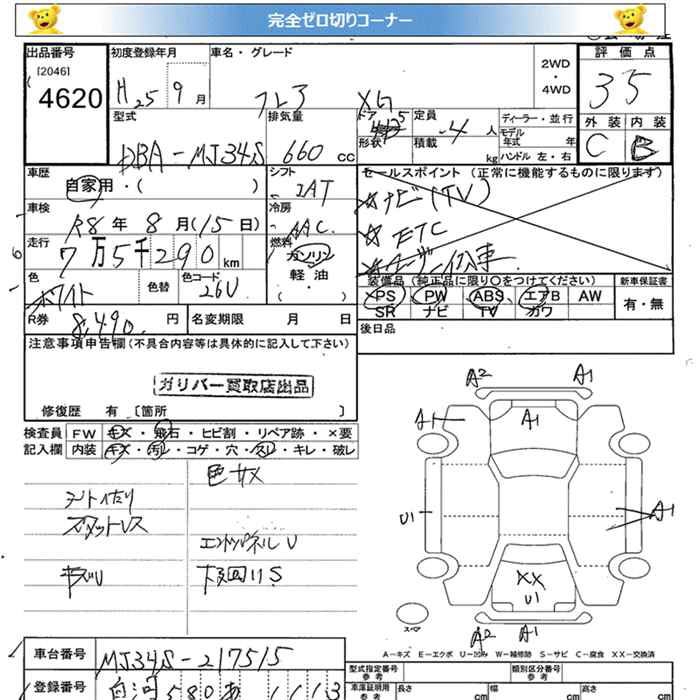 完全ゼロ切りコーナー
出品番号 初度登録年月 車名・グレード 2WD・4WD 評価点
[2046]
4620 H25 9月 フレア XG 35
型式 排気量 ドア 5 定員 ディーラー・並行 外装 内装
形状 積載 -4人 モデル年式 年 C B
DBA-MJ34S 660cc kg ハンドル 左・右
車歴 シフト セールスポイント(正常に機能するものに限ります)
自家用・( ) IAT ナビ(TV)
車検 冷房 ETC
R8年8月(15日) AAC
走行 燃料
7万5千290km ガソリン
色 色替 色コード 軽油 装備品(純正品に限り○をつけてください) 新車保証書
ホワイト 26U (・) PS PW ABS エアB AW 有・無
SR ナビ TV カワ
R券 8,490円 名変期限 月 日 後日品
注意事項申告欄(不具合内容等は具体的に記入して下さい)
ガリバー買取店出品
修復歴 有 〔箇所 〕
検査員 FW キズ・飛石・ヒビ割・リペア跡・×要
記入欄 内装 キズ・汚レ・コゲ・穴・スレ・キレ・破レ
色サメ
シートイたり
スタットレス
エンドパネルU
キズU 下回りS
A2 A1
A1 A1
U1 A1
XX
U1
スペア
A2 A1
A-キズ E-エクボ U-凹み W-補修跡 S-サビ C-腐食 XX-交換済
車台番号 MJ34S-217515
型式指定番号 参考 類別区分番号 参考
登録番号 白河580あ1113
車庫証明用 参考 長さ cm 幅 cm 高さ cm